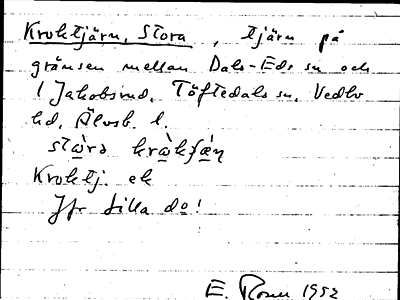 Kroktjärn, Stora, tjärn på
gränsen mellan Dals-Eds sn och
1 Jakobsrud, Töftedals sn, Vedbo
hd, Älvsb. l.
Kroktj. ek
Jfr Lilla do!
E. 1952